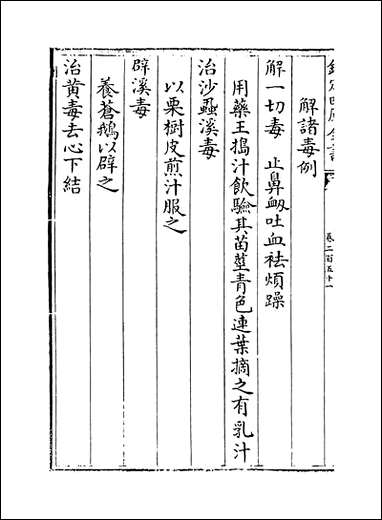 欽定四庫全書
卷二百五十一
解諸毒例
解一切毒　止鼻衂吐血祛煩躁
用藥王搗汁飲驗其苗莖青色連葉摘之有乳汁
治沙蝨溪毒
以栗樹皮煎汁服之
辟溪毒
養蒼鵝以辟之
治黄毒去心下結